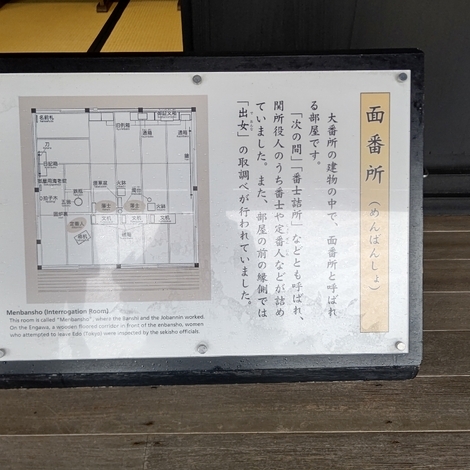 面番所（めんばんしょ）
大番所の建物の中で、面番所と呼ばれ
る部屋です。
「次の間」「番士詰所」などとも呼ばれ、
関所役人のうち番士や定番人などが詰め
ていました。また、部屋の前の縁側では
「出女」の取調べが行われていました。
名前札
刀
火鉢
番士
番士
火鉢
文机
文机
文机
定番人
Menbansho (Interrogation Room)
This room is called "Menbansho", where the Banshi and the Jobannin worked.
On the Engawa, a wooden floored corridor in front of the enbansho, women
who attempted to leave Edo (Tokyo) were inspected by the sekisho officials.